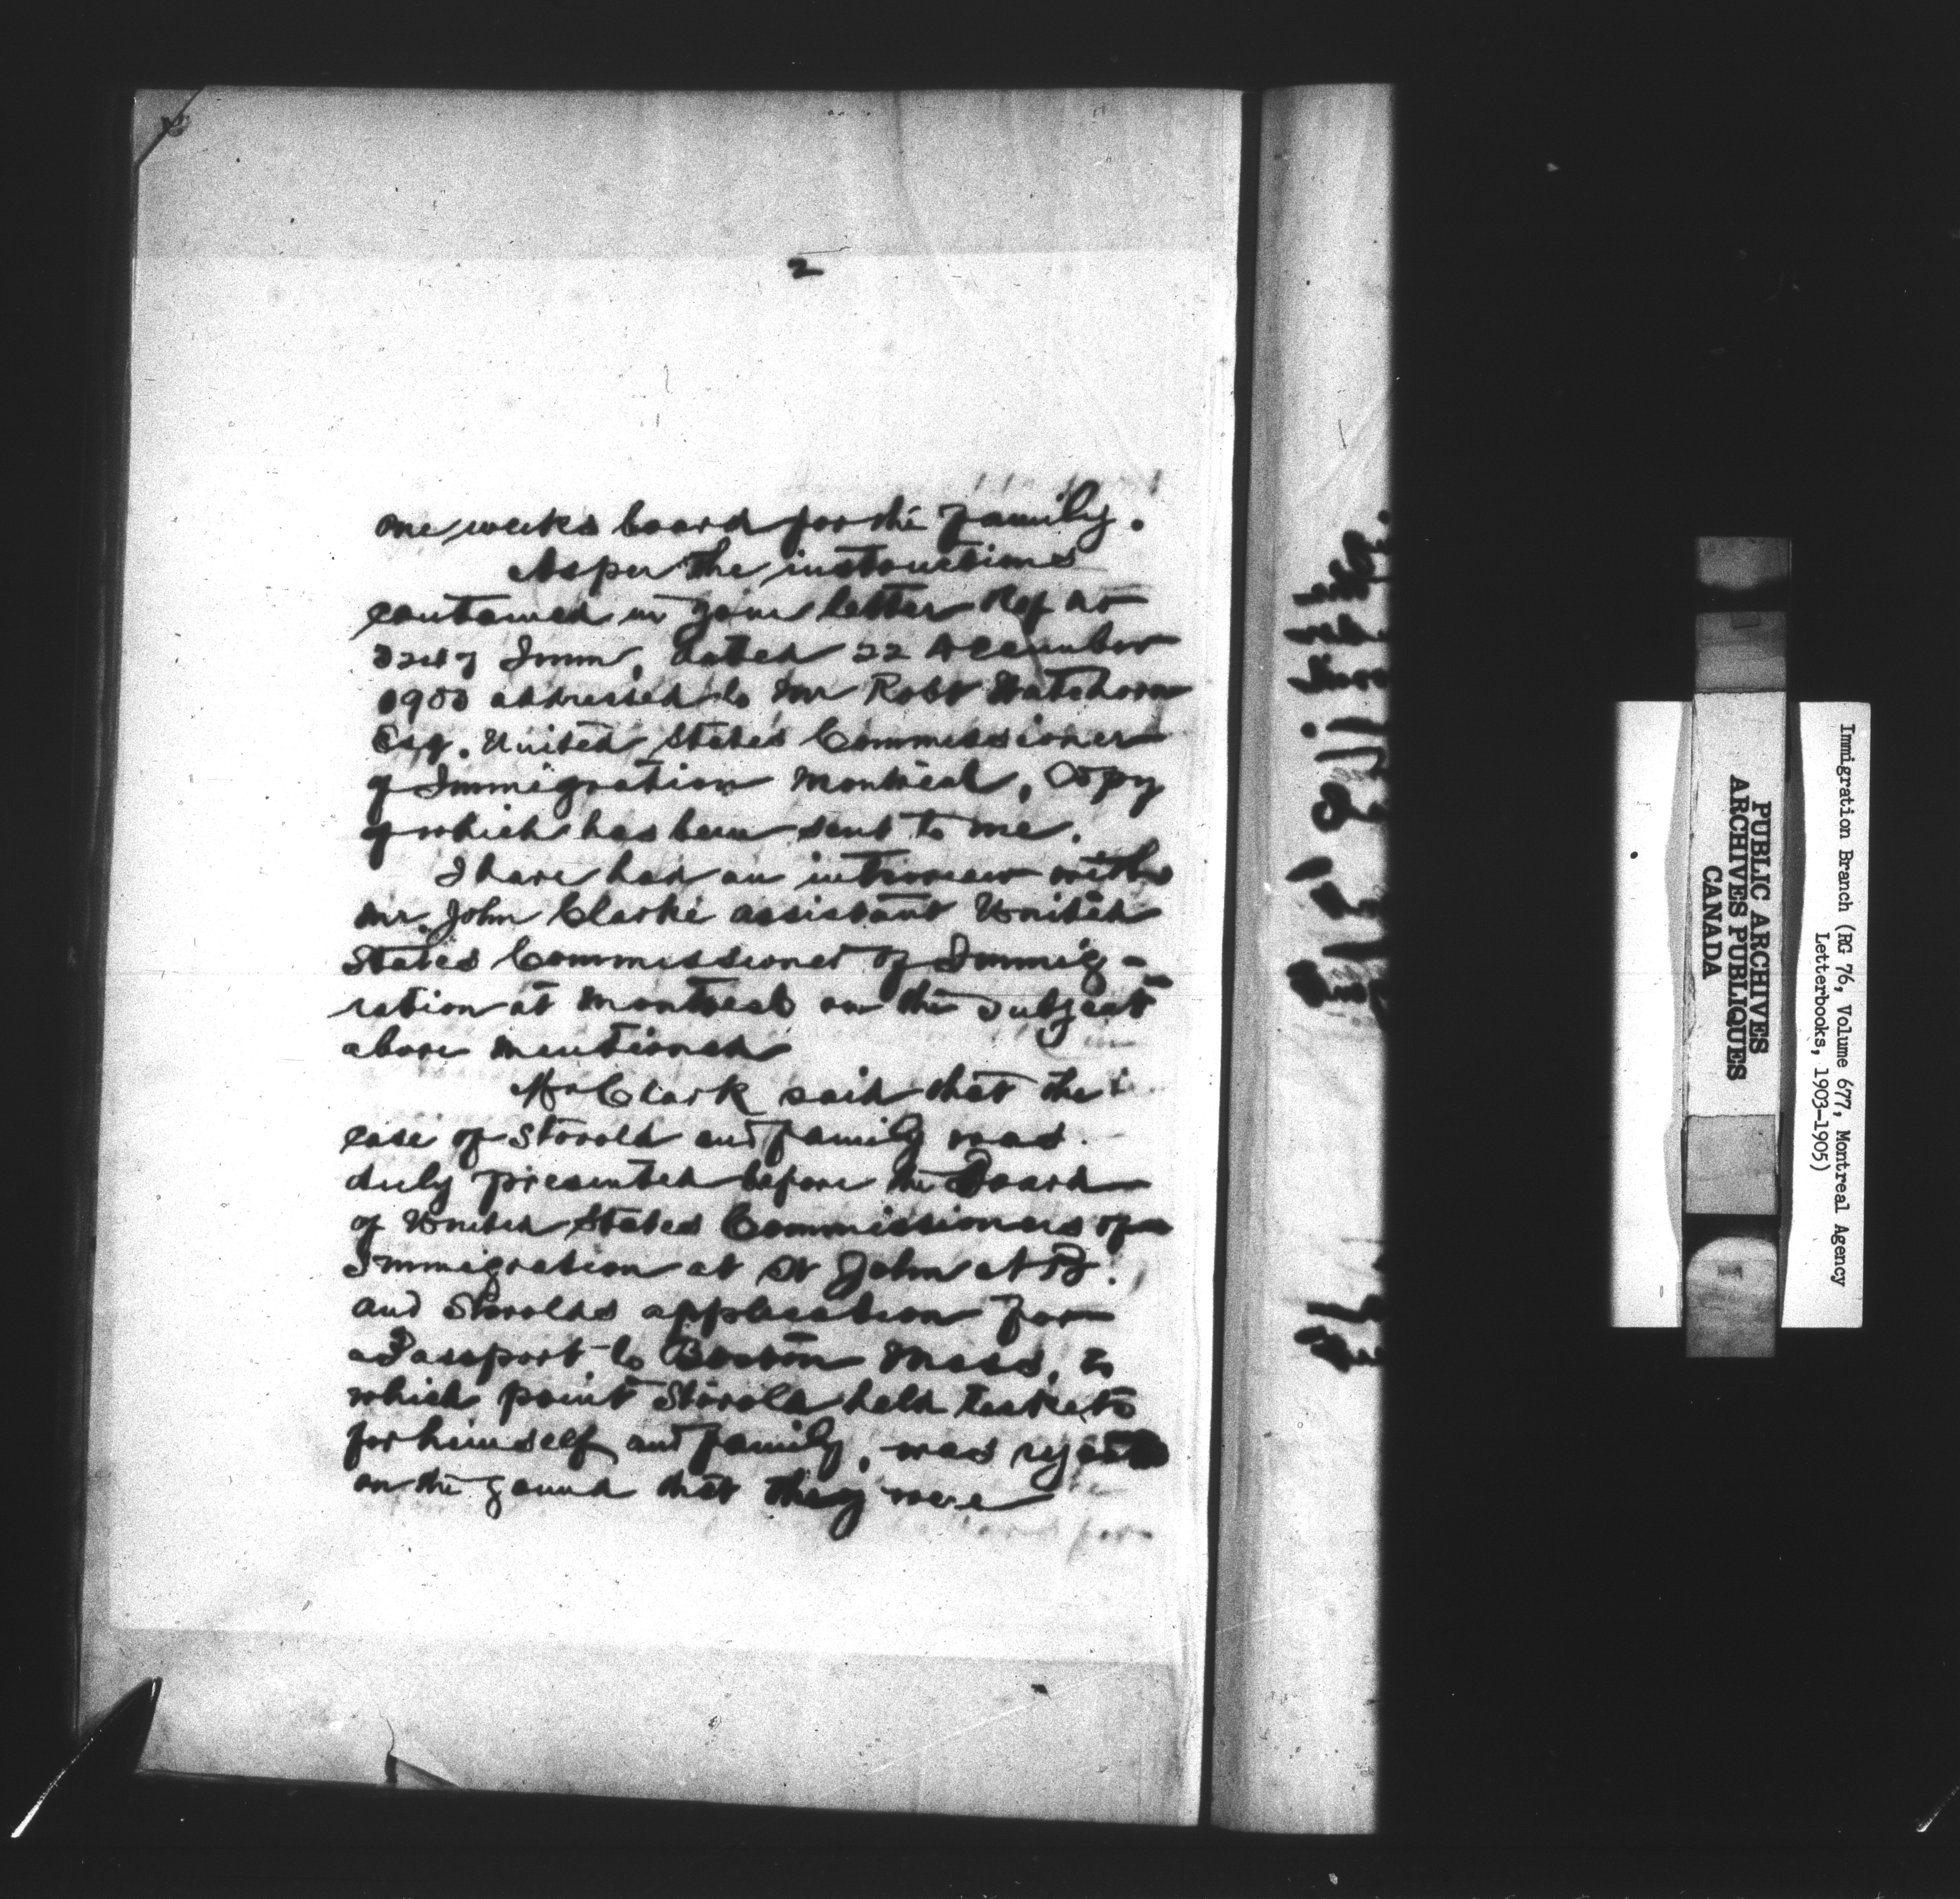 2
one weeks board for the Family.
As per the instructions
contained in your letter Ref no
Imm, dated 22 December
addressed to Mr Robt Watchorn
Esq. United States Commissioner
of Immigration Montreal, Copy
of which has been sent to me.
I have had an interview with
Mr. John Clarke assistant United
States Commissioner of Immig-
ration at Montreal on the subject
above mentioned
Mr Clark said that the
case of Storold and family was
duly presented before the Board
of United States Commissioners of
Immigration at St John N B.
and Storolds application for
a Passport to Boston Mass, to
which point Storold held tickets
for himself and family, was
on the gound that they were
PUBLIC ARCHIVES
ARCHIVES PUBLIQUES
CANADA
Immigration Branch (RG 76, Volume 677, Montreal Agency
Letterbooks, 1903-1905)